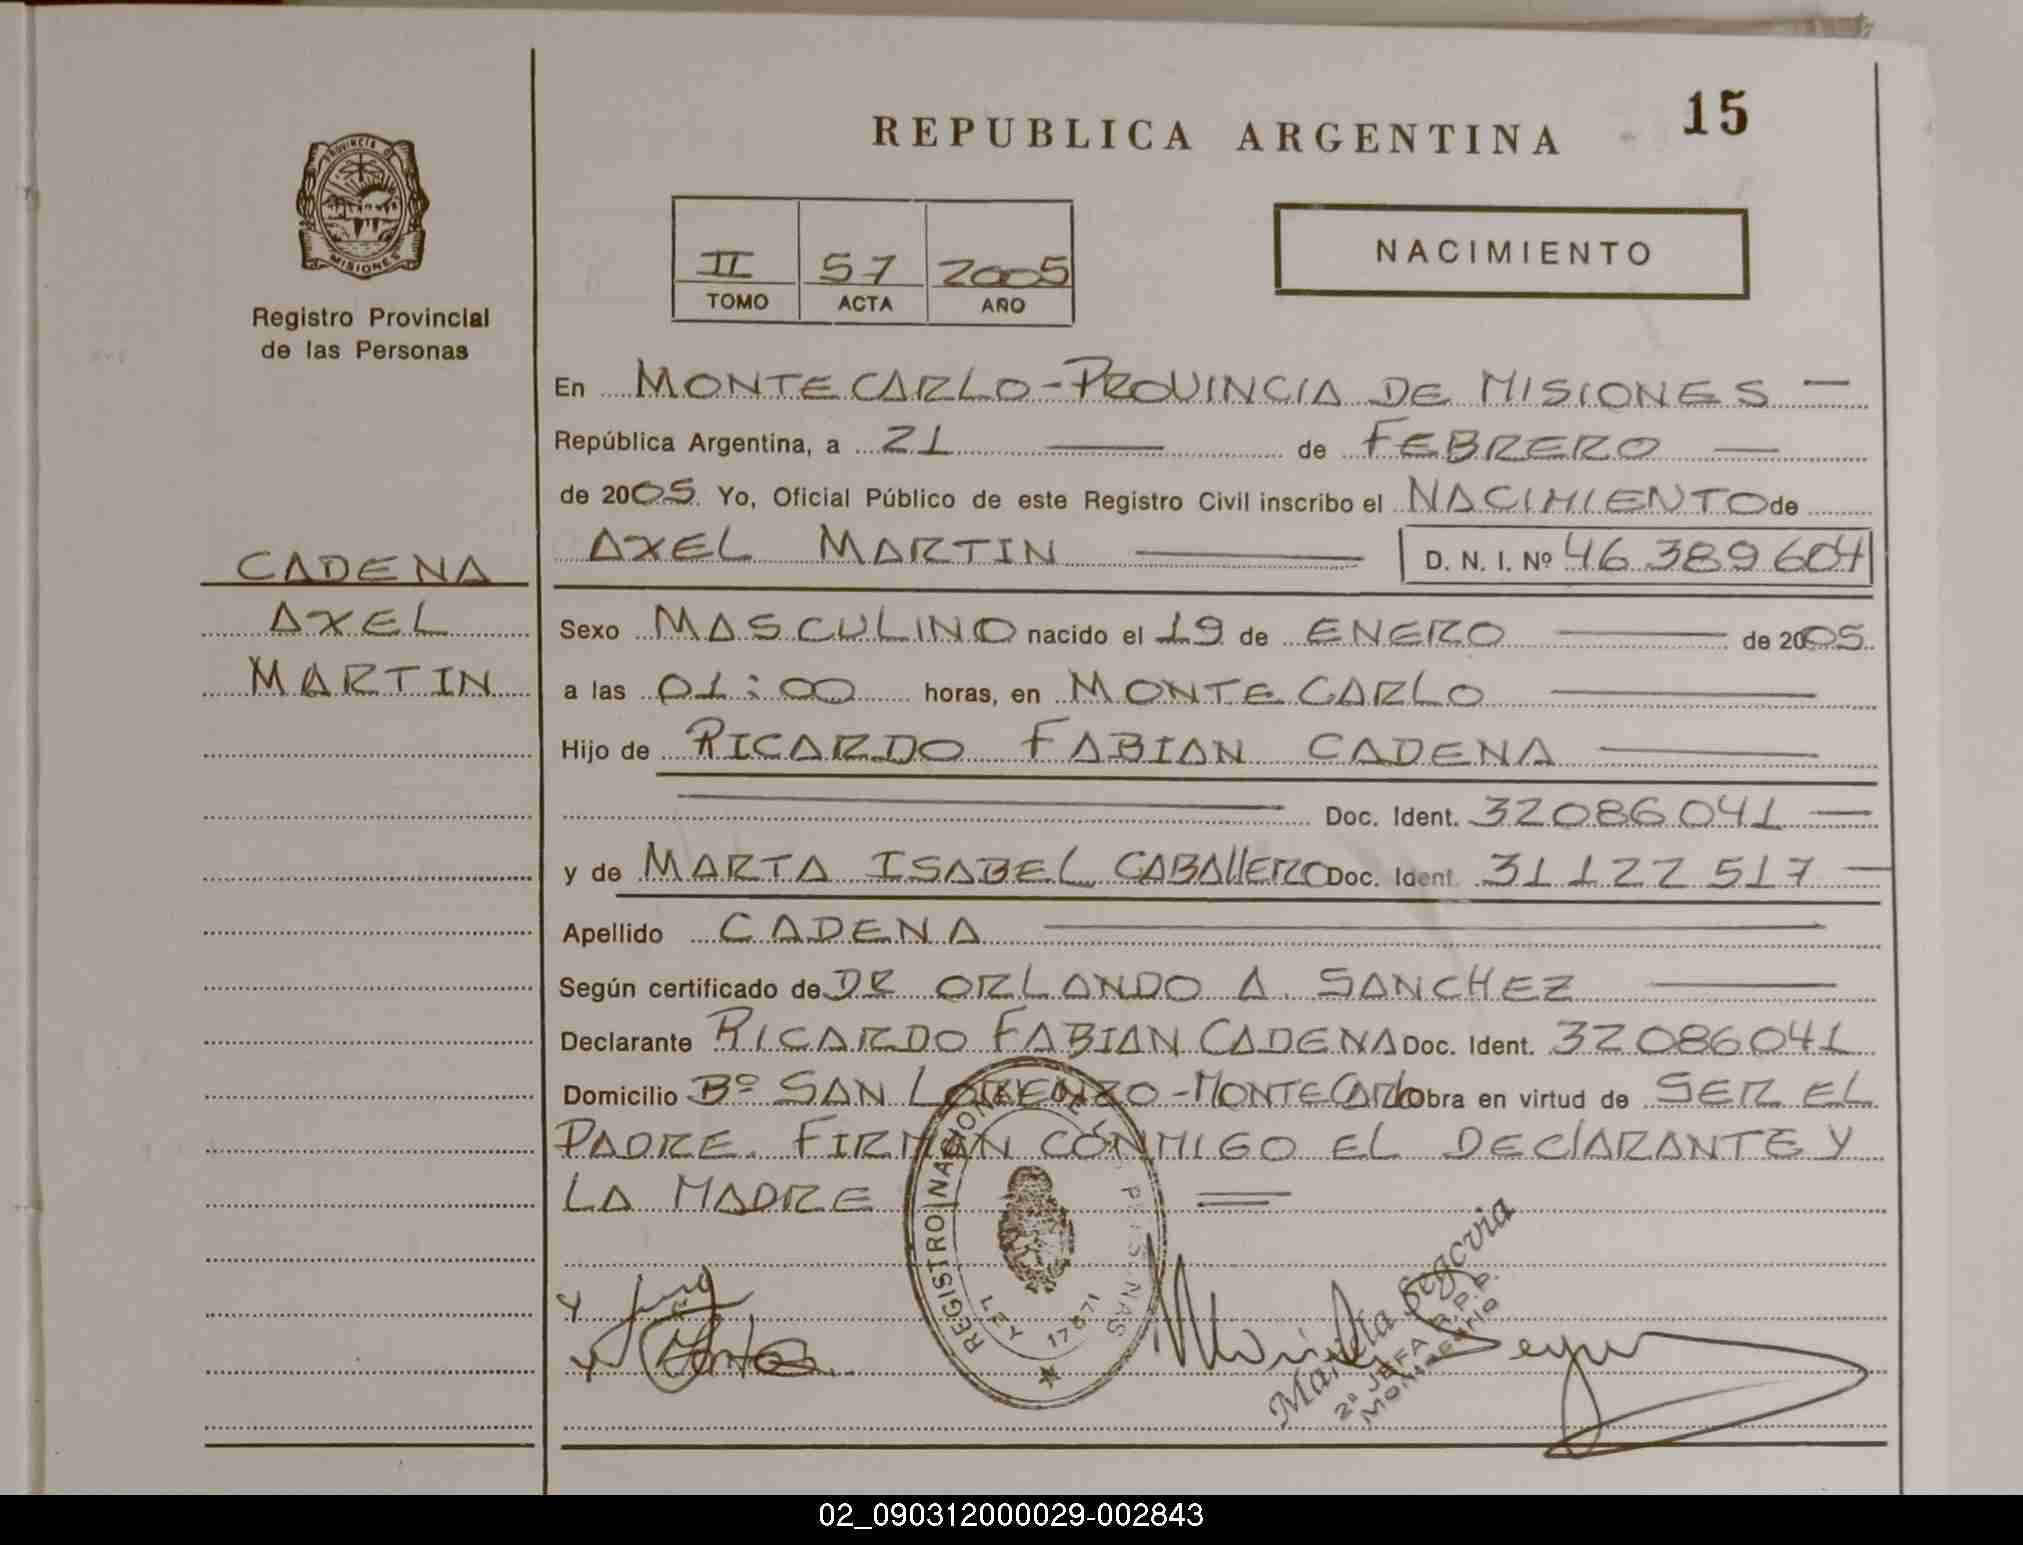 REPUBLICA ARGENTINA
15
PROVINCIA DE
MISIONES
Registro Provincial
de las Personas
II 57 2005
TOMO ACTA AÑO
NACIMIENTO
En MONTECARLO - PROVINCIA DE MISIONES —
República Argentina, a 21 — de FEBRERO —
de 2005. Yo, Oficial Público de este Registro Civil inscribo el NACIMIENTO de
AXEL MARTIN — D. N. I. Nº 46.389.604
CADENA
AXEL
MARTIN
Sexo MASCULINO nacido el 19 de ENERO — de 2005.
a las 01:00 horas, en MONTECARLO —
Hijo de RICARDO FABIAN CADENA —
— Doc. Ident. 32086041 —
y de MARTA ISABEL CABAllERO Doc. Ident. 31122517 —
Apellido CADENA —
Según certificado de DR ORLANDO A. SANCHEZ —
Declarante RICARDO FABIAN CADENA Doc. Ident. 32086041
Domicilio Bº SAN LORENZO - MONTECARlo obra en virtud de SER EL
PADRE. FIRMAN CONMIGO EL DEClARANTE Y
LA MADRE =
REGISTRO NACIONAL DE LAS PERSONAS
LEY 17671
Mariela Segovia
2º JEFA R.P.P.
MONTECARLO
02_090312000029-002843